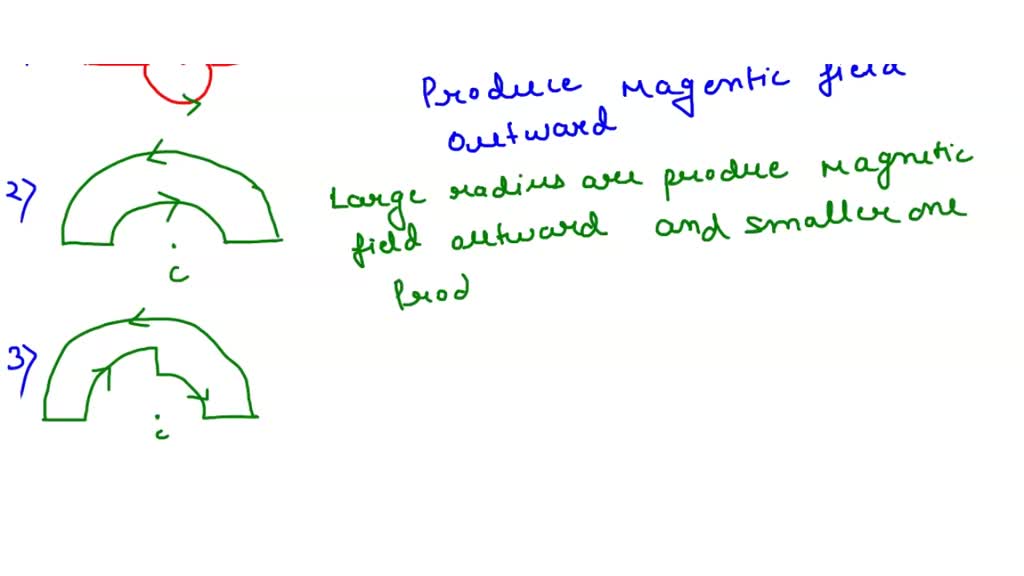 Produce Magentic field
outward
2)
Large radius are produce Magnetic
field outward and smaller one
Prod
c
3)
c